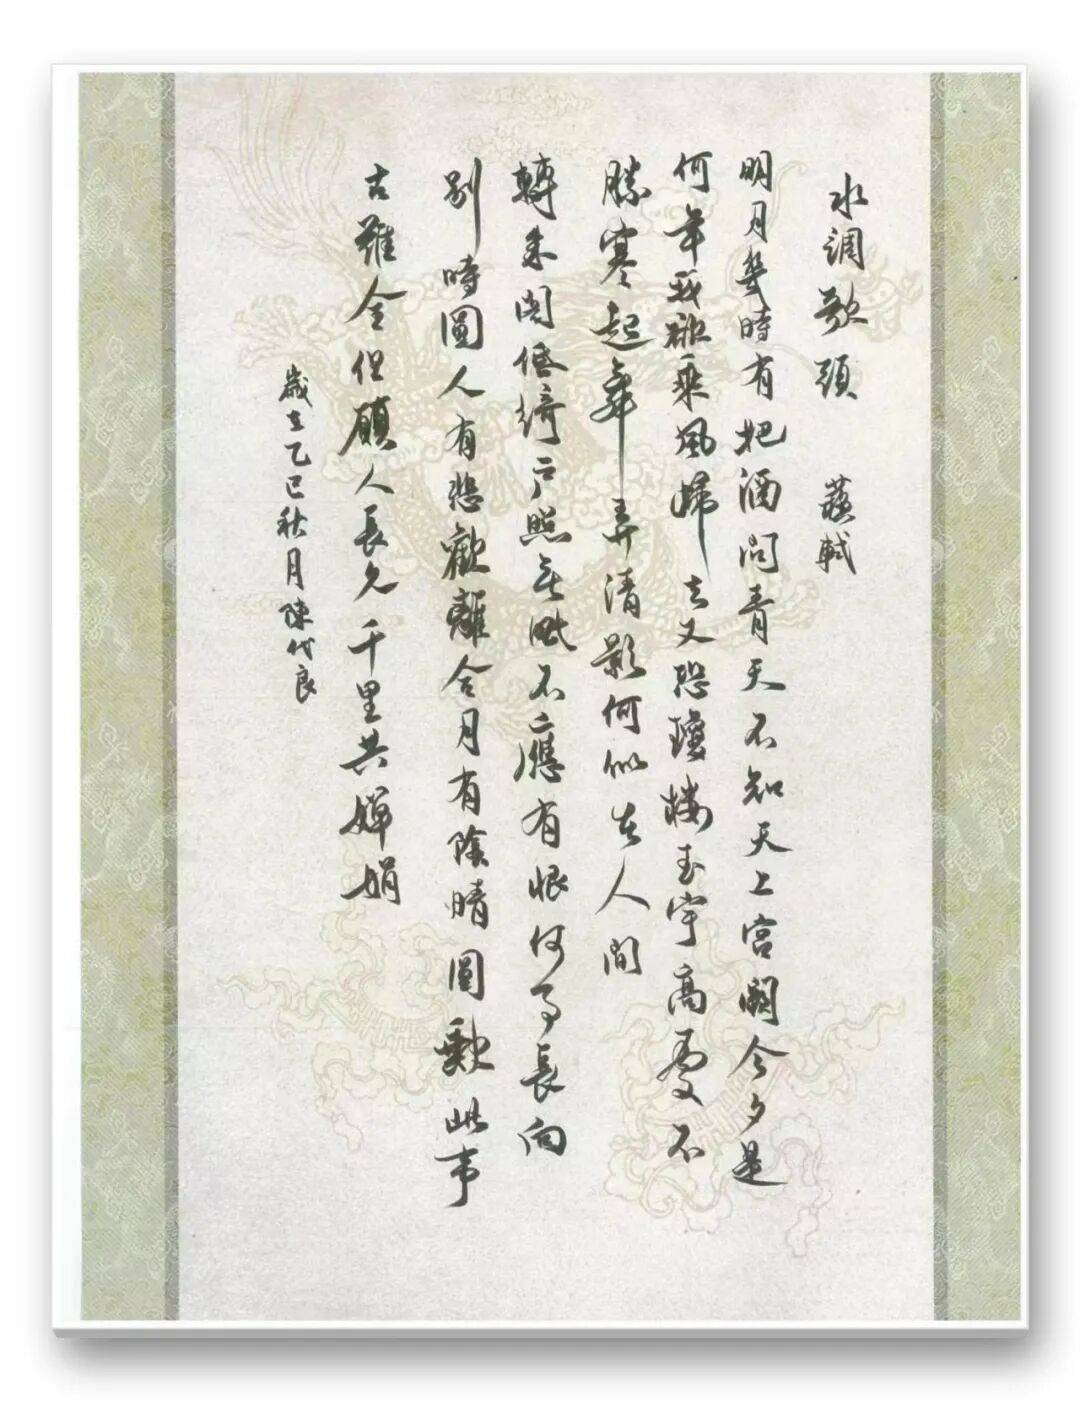 水調歌頭 蘇軾
明月幾時有把酒問青天不知天上宮闕今夕是
何年我欲乘風歸去又恐瓊樓玉宇高處不
勝寒起舞弄清影何似在人間
轉朱閣低綺戶照無眠不應有恨何事長向
別時圓人有悲歡離合月有陰晴圓缺此事
古難全但願人長久千里共嬋娟
歲在乙巳秋月陳代良